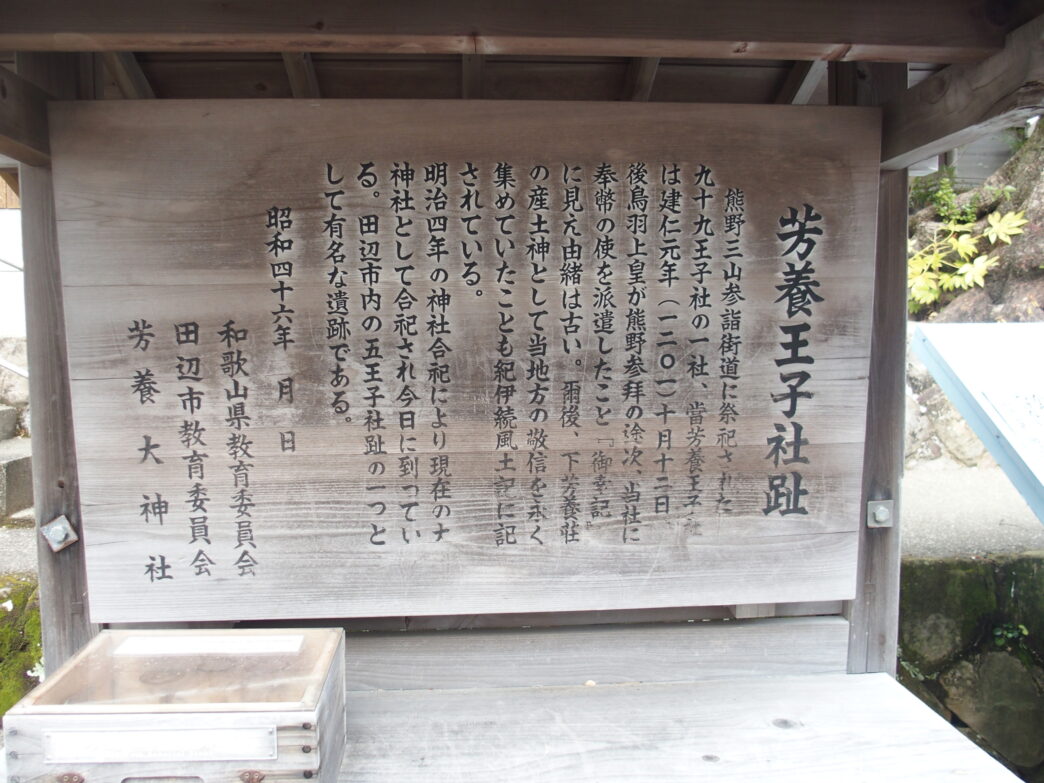 芳養王子社趾
熊野三山参詣街道に祭祀された
九十九王子社の一社、當芳養王子社
は建仁元年（一二〇一）十月十二日
後鳥羽上皇が熊野参拝の途次、当社に
奉幣の使を派遣したこと『御幸記』
に見え由緒は古い。爾後、下芳養荘
の産土神として当地方の敬信を永く
集めていたことも紀伊続風土記に記
されている。
明治四年の神社合祀により現在の大
神社として合祀され今日に到ってい
る。田辺市内の五王子社趾の一つと
して有名な遺跡である。
昭和四十六年　月　日
和歌山県教育委員会
田辺市教育委員会
芳養大神社